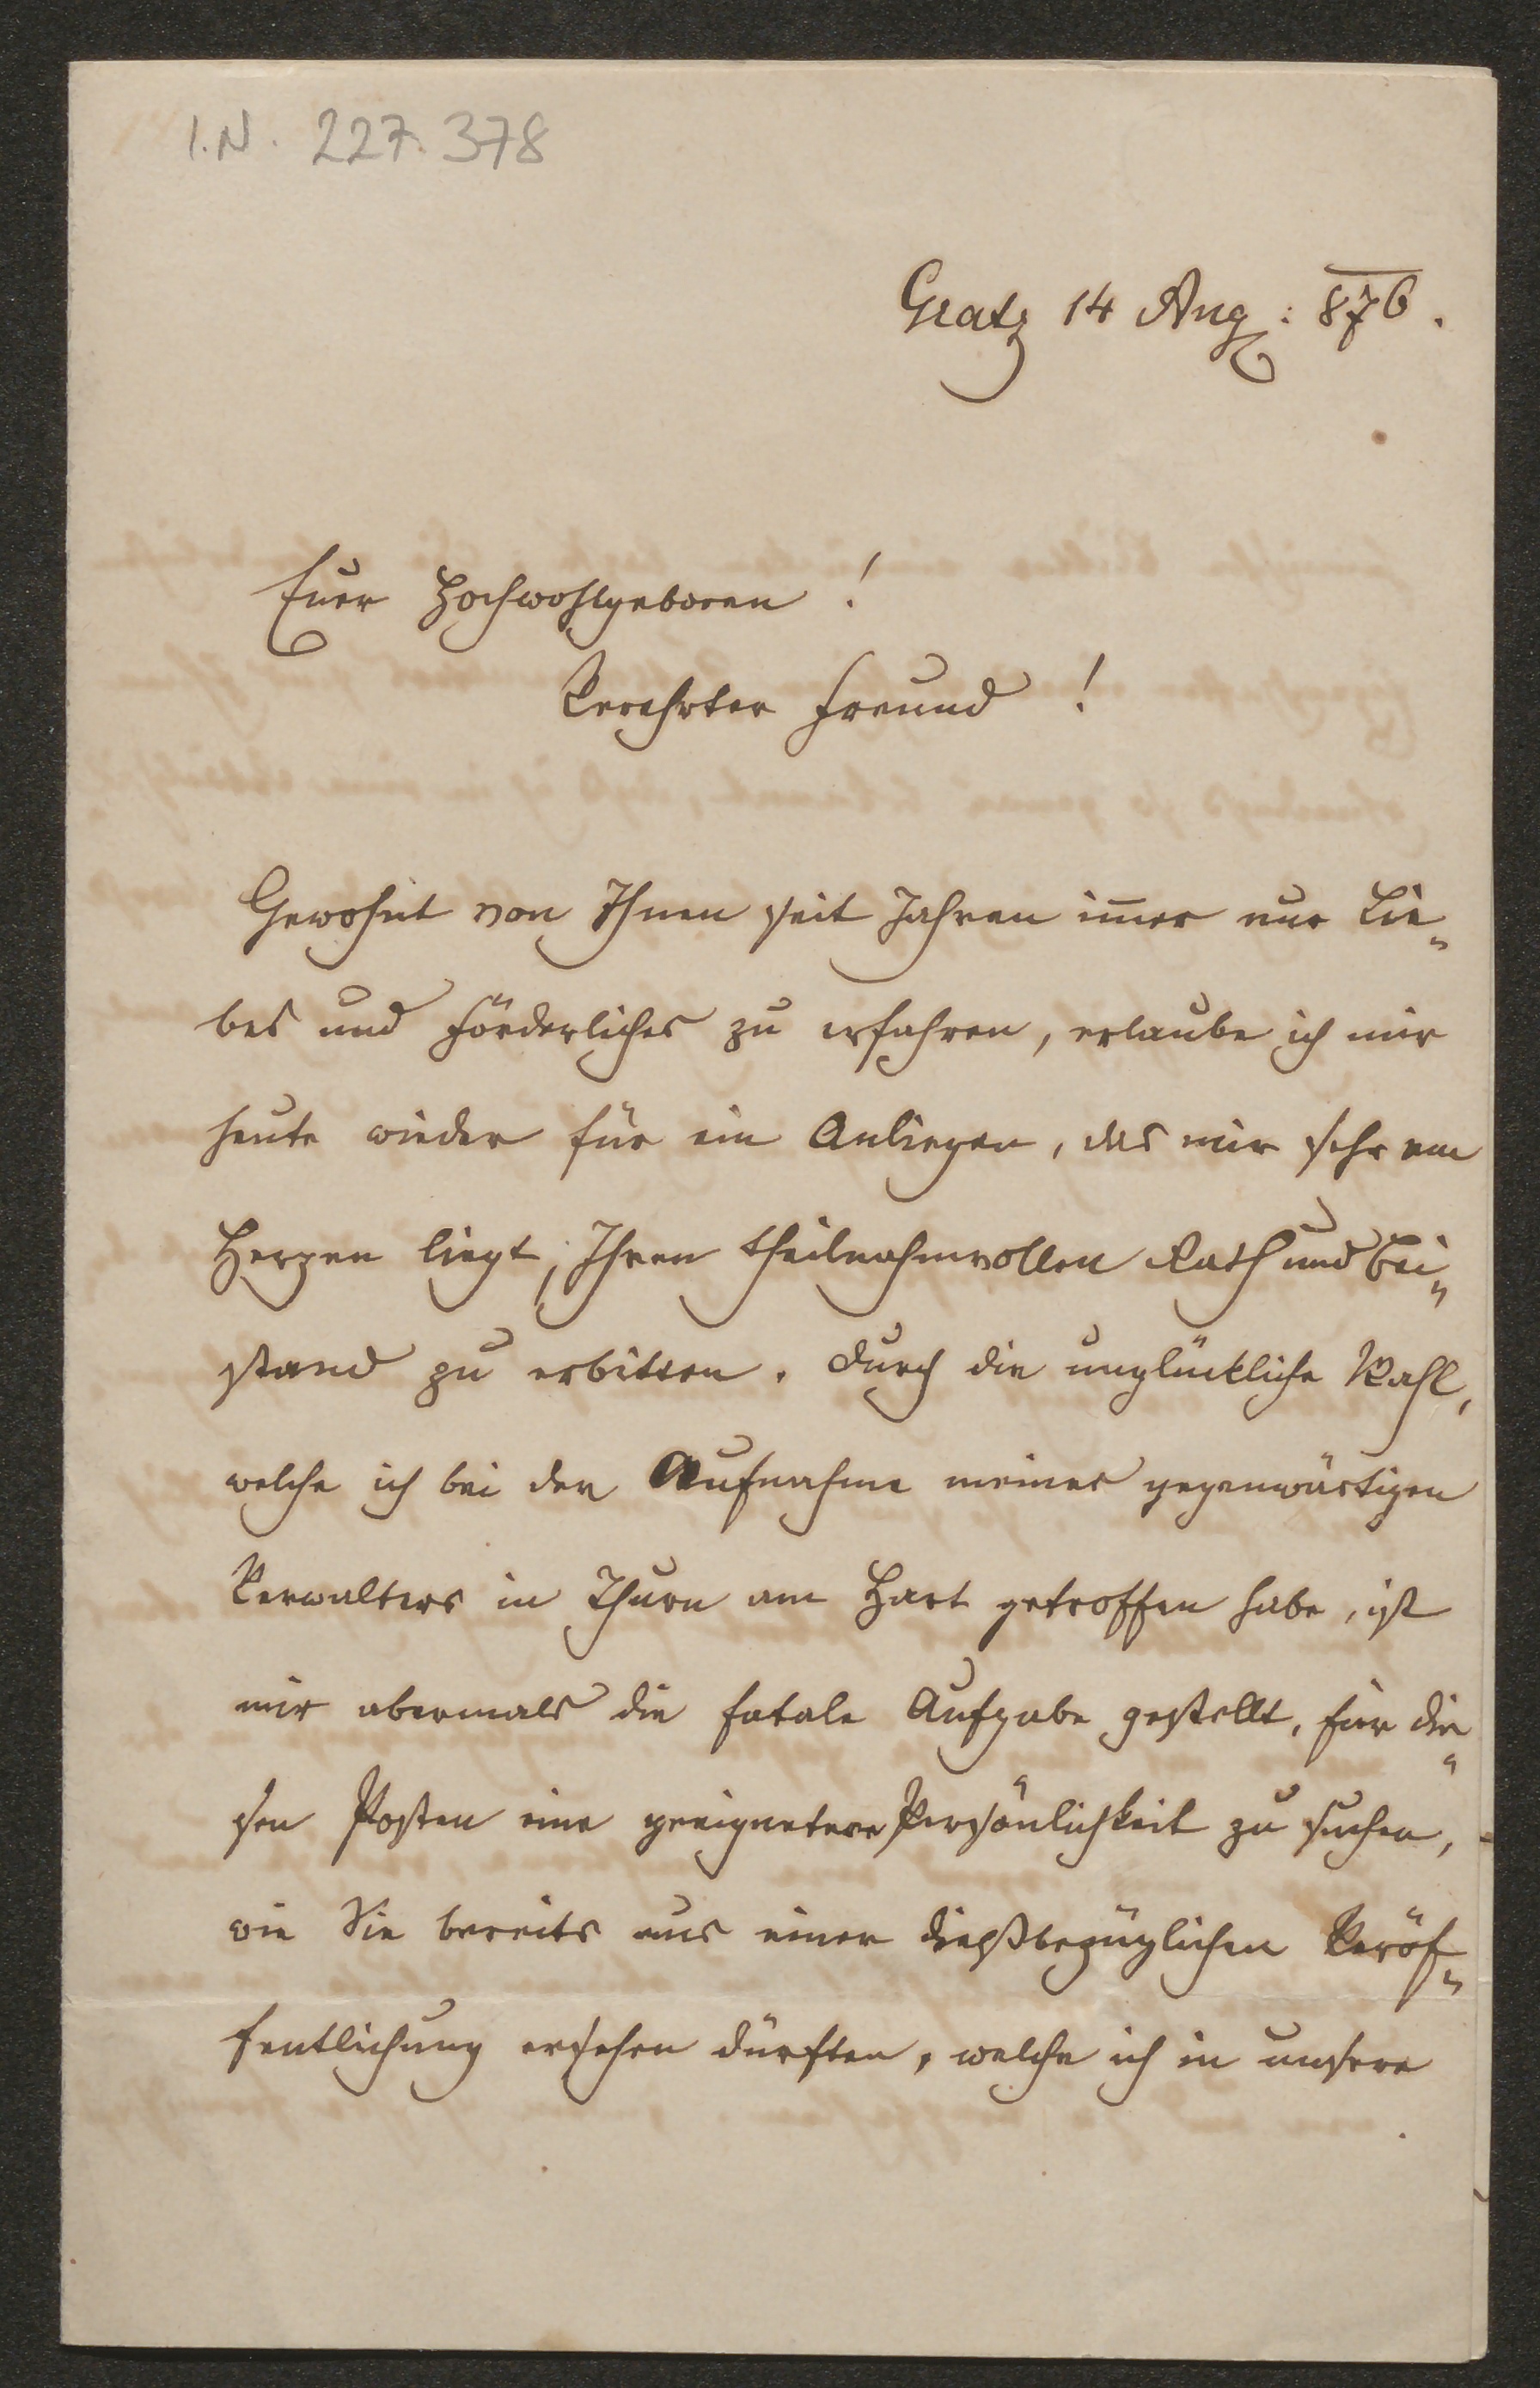 I.N. 227.378
Gratz 14 Aug: 876.
Euer Hochwohlgeboren!
Verehrter Freund!
Gewohnt von Ihnen seit Jahren im̄er nur Lie„
bes und Förderliches zu erfahren, erlaube ich mir
heute wieder für ein Anliegen, das mir sehr am
Herzen liegt, Ihren theilnahmvollen Rath und Bei„
stand zu erbitten. Durch die unglückliche Wahl,
welche ich bei der Aufnahme meines gegenwärtigen
Verwalters in Thurn am Hart getroffen habe, ist
mir abermals die fatale Aufgabe gestellt, für die„
sen Posten eine geeignetere Persönlichkeit zu suchen,
wie Sie bereits aus einer dießbezüglichen Veröf„
fentlichung ersehen dürften, welche ich in unsere